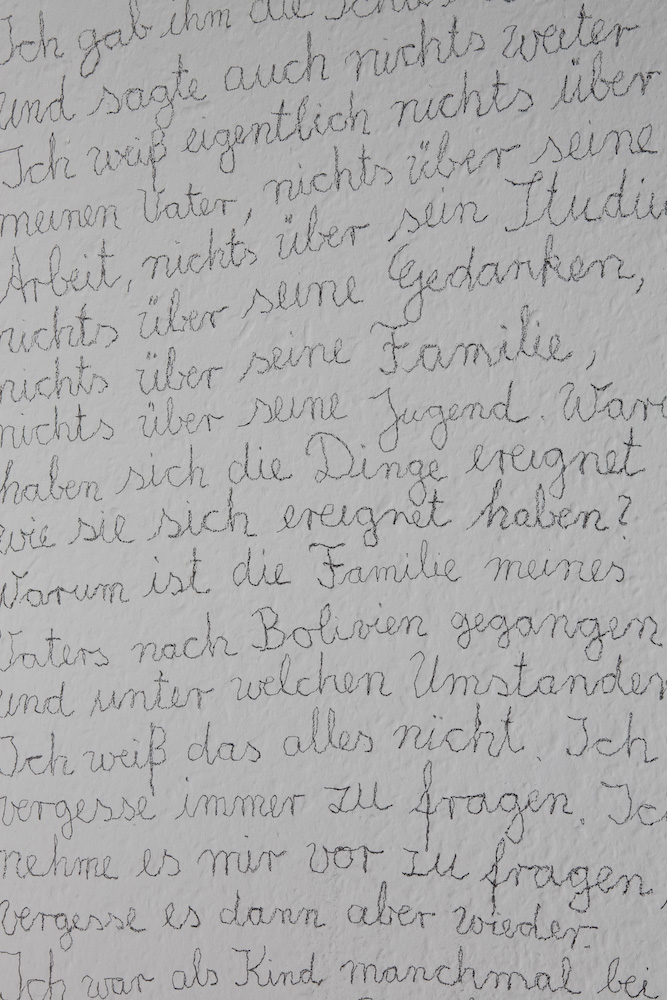 Ich gab ihm die
und sagte auch nichts weiter
Ich weiß eigentlich nichts über
meinen Vater, nichts über seine
Arbeit, nichts über sein Studiu
nichts über seine Gedanken,
nichts über seine Familie,
nichts über seine Jugend. Waru
haben sich die Dinge ereignet
wie sie sich ereignet haben?
Warum ist die Familie meines
Vaters nach Bolivien gegangen
und unter welchen Umstanden
Ich weiß das alles nicht. Ich
vergesse immer zu fragen. Ic
nehme es mir vor zu fragen,
vergesse es dann aber wieder.
Ich war als Kind manchmal bei